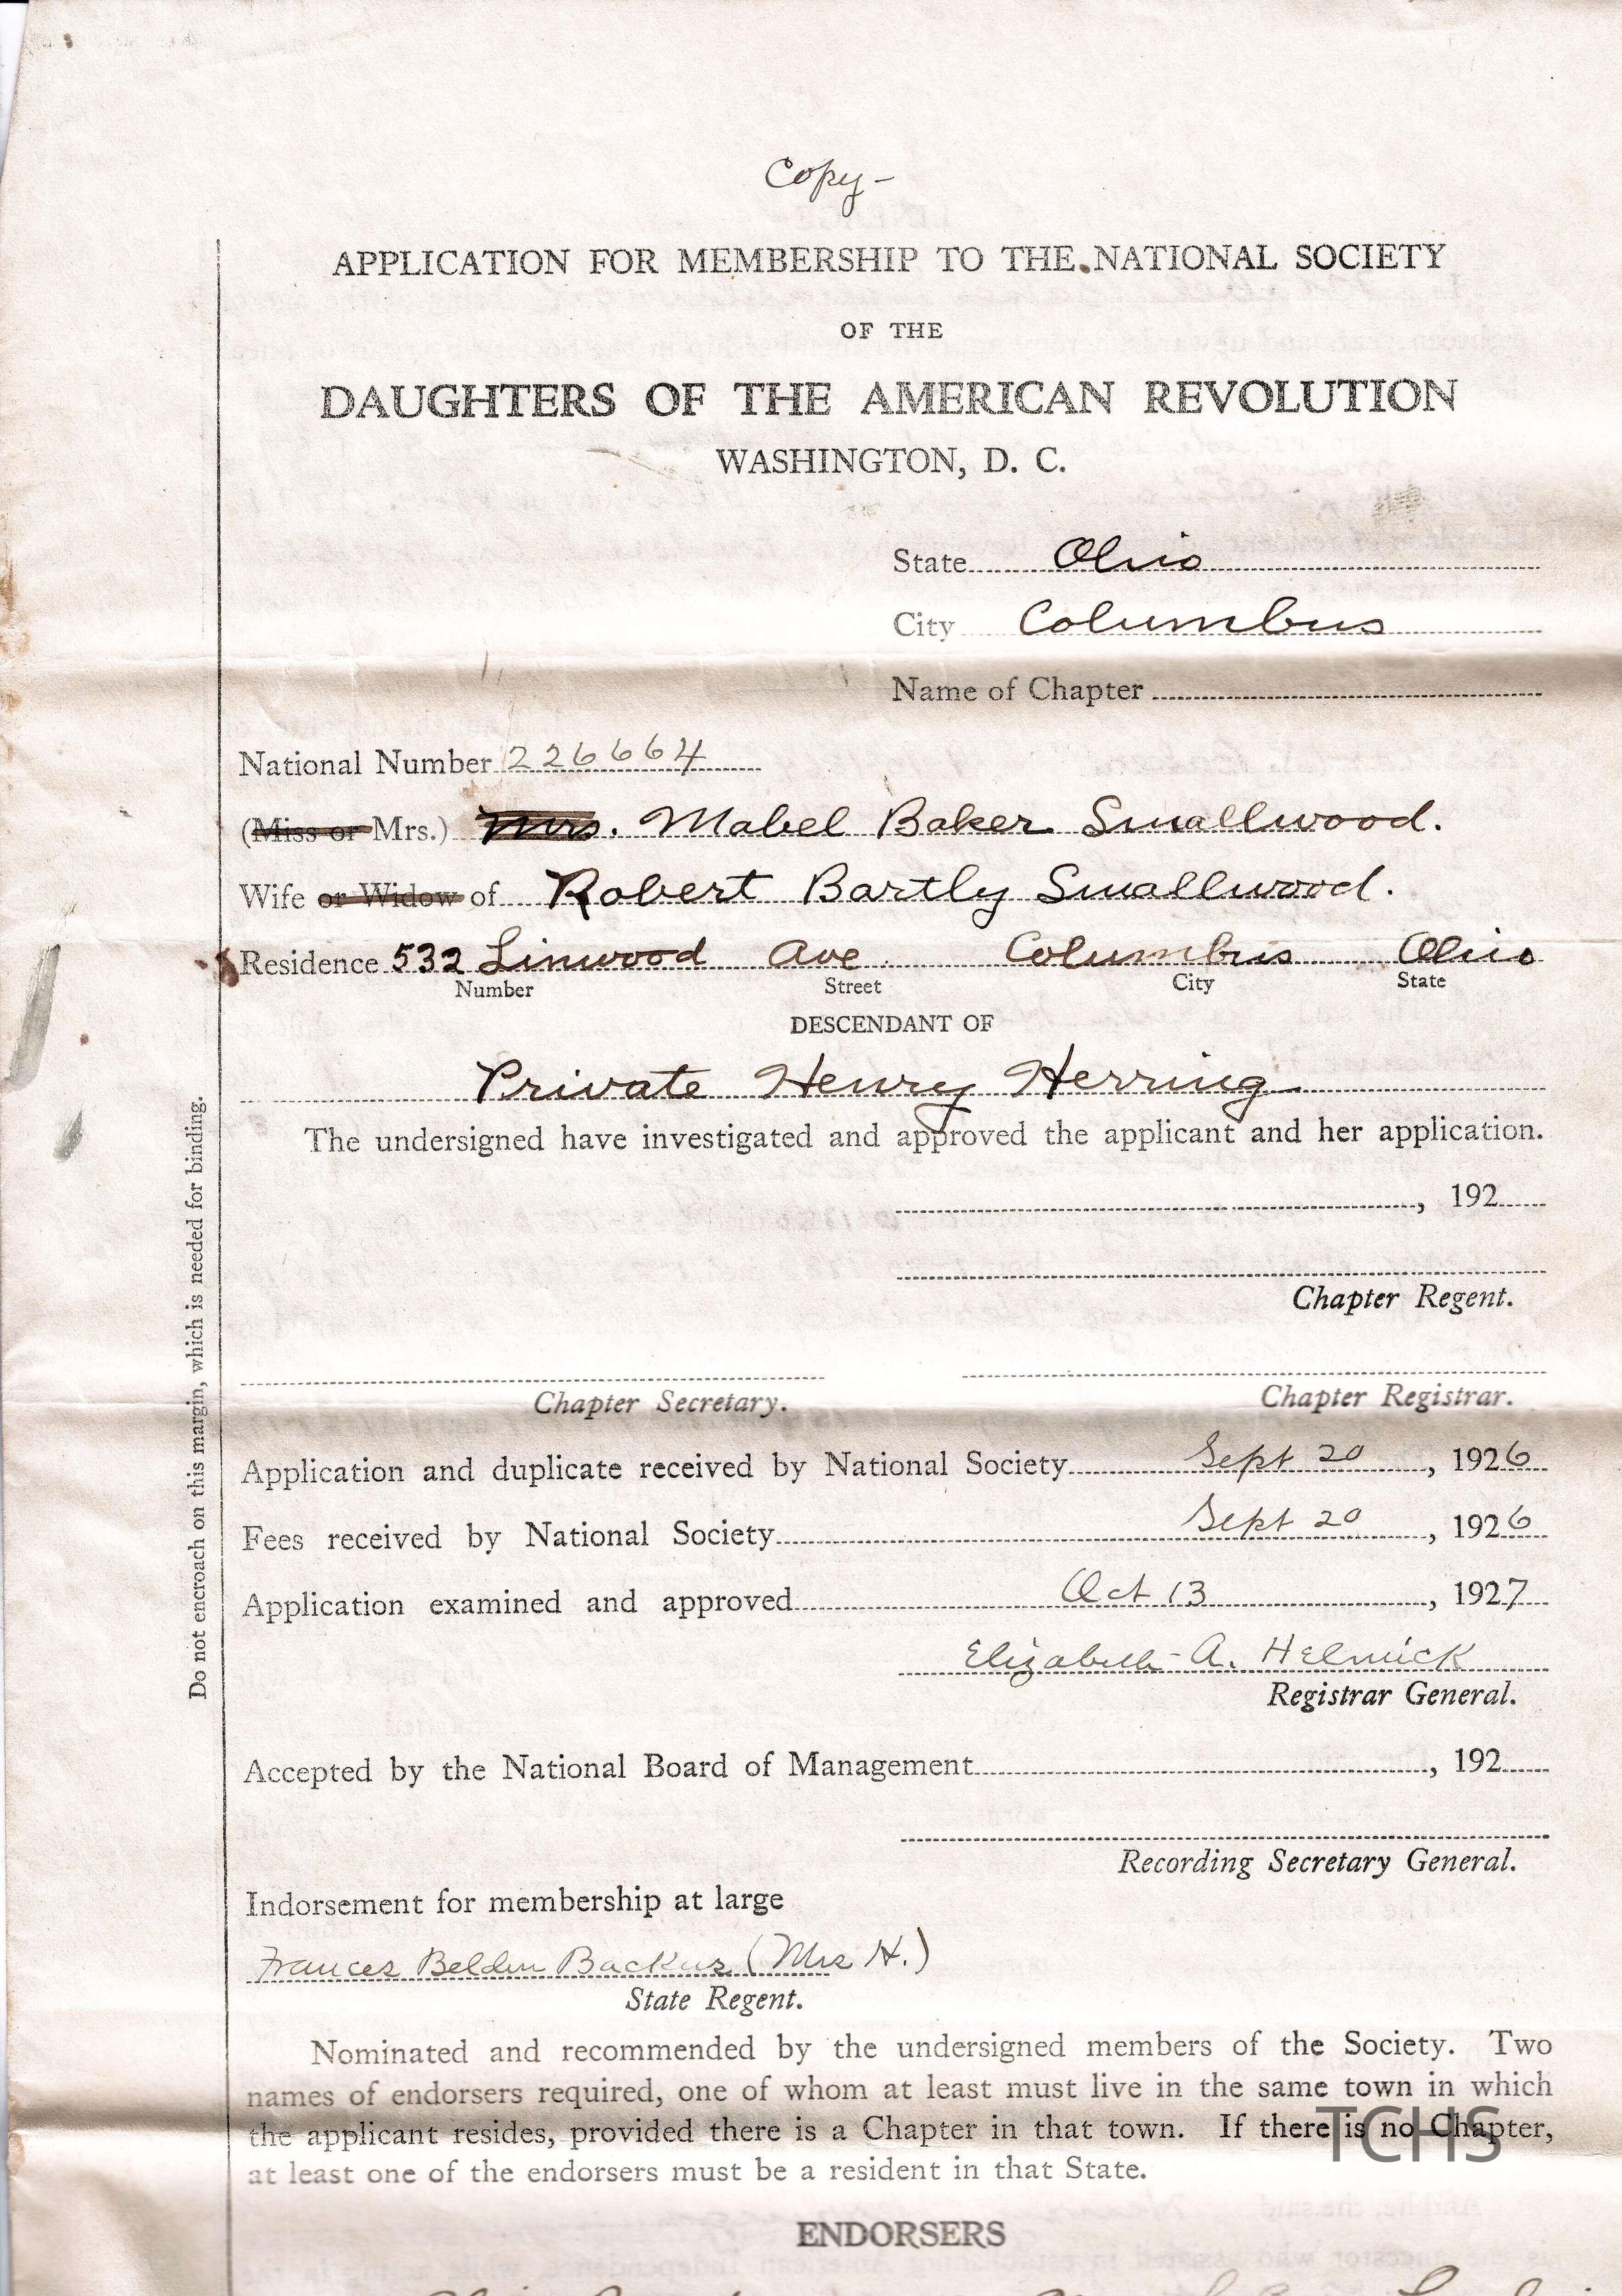 Copy-
APPLICATION FOR MEMBERSHIP TO THE NATIONAL SOCIETY
OF THE
DAUGHTERS OF THE AMERICAN REVOLUTION
WASHINGTON, D. C.
State Ohio
City Columbus
Name of Chapter
National Number 226664
(Miss or Mrs.) Mrs. Mabel Baker Smallwood.
Wife or Widow of Robert Bartly Smallwood.
Residence 532 Linwood Ave. Columbus Ohio
Number Street City State
DESCENDANT OF
Private Henry Herring
The undersigned have investigated and approved the applicant and her application.
, 192
Chapter Regent.
Chapter Secretary. Chapter Registrar.
Application and duplicate received by National Society Sept 20, 1926
Fees received by National Society Sept 20, 1926
Application examined and approved Oct 13, 1927
Elizabeth A. Helmick
Registrar General.
Accepted by the National Board of Management, 192
Recording Secretary General.
Indorsement for membership at large
Frances Belden Backus (Mrs H.)
State Regent.
Nominated and recommended by the undersigned members of the Society. Two
names of endorsers required, one of whom at least must live in the same town in which
the applicant resides, provided there is a Chapter in that town. If there is no Chapter,
at least one of the endorsers must be a resident in that State.
TCHS
ENDORSERS
Do not encroach on this margin, which is needed for binding.